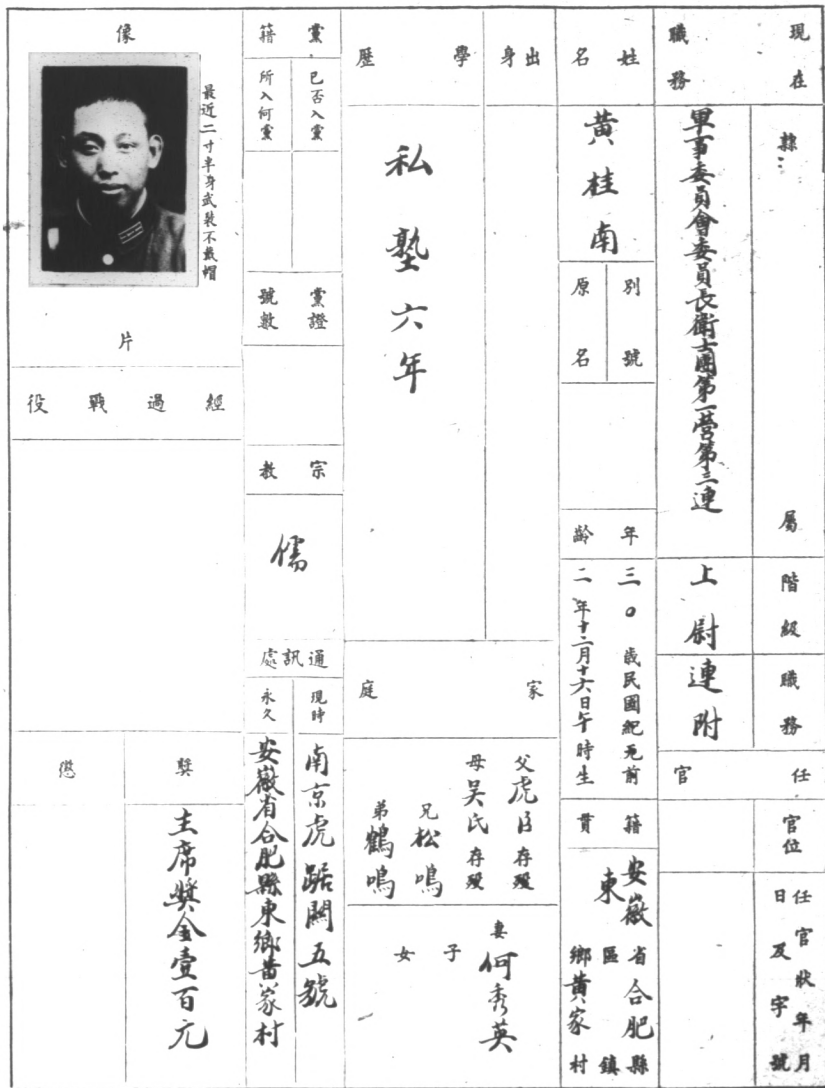 現在職務
隸屬
軍事委員會委員長衛士團第一營第三連
階級
上尉
職務
連附
任官
官位
任官狀年月日及字號
姓名
黃桂南
別號
原名
年齡
三〇歲民國紀元前
二年十二月十六日午時生
籍貫
安徽省合肥縣
東區鎮
鄉黃家村
出身
學歷
私塾六年
家庭
父虎臣存歿
母吳氏存歿
兄松鳴
弟鶴鳴
妻何秀英
子
女
黨籍
已否入黨
所入何黨
黨證號數
宗教
儒
通訊處
現時
南京虎踞關五號
永久
安徽省合肥縣東鄉黃家村
像片
最近二寸半身武裝不戴帽
經過戰役
獎
主席獎金壹百元
懲